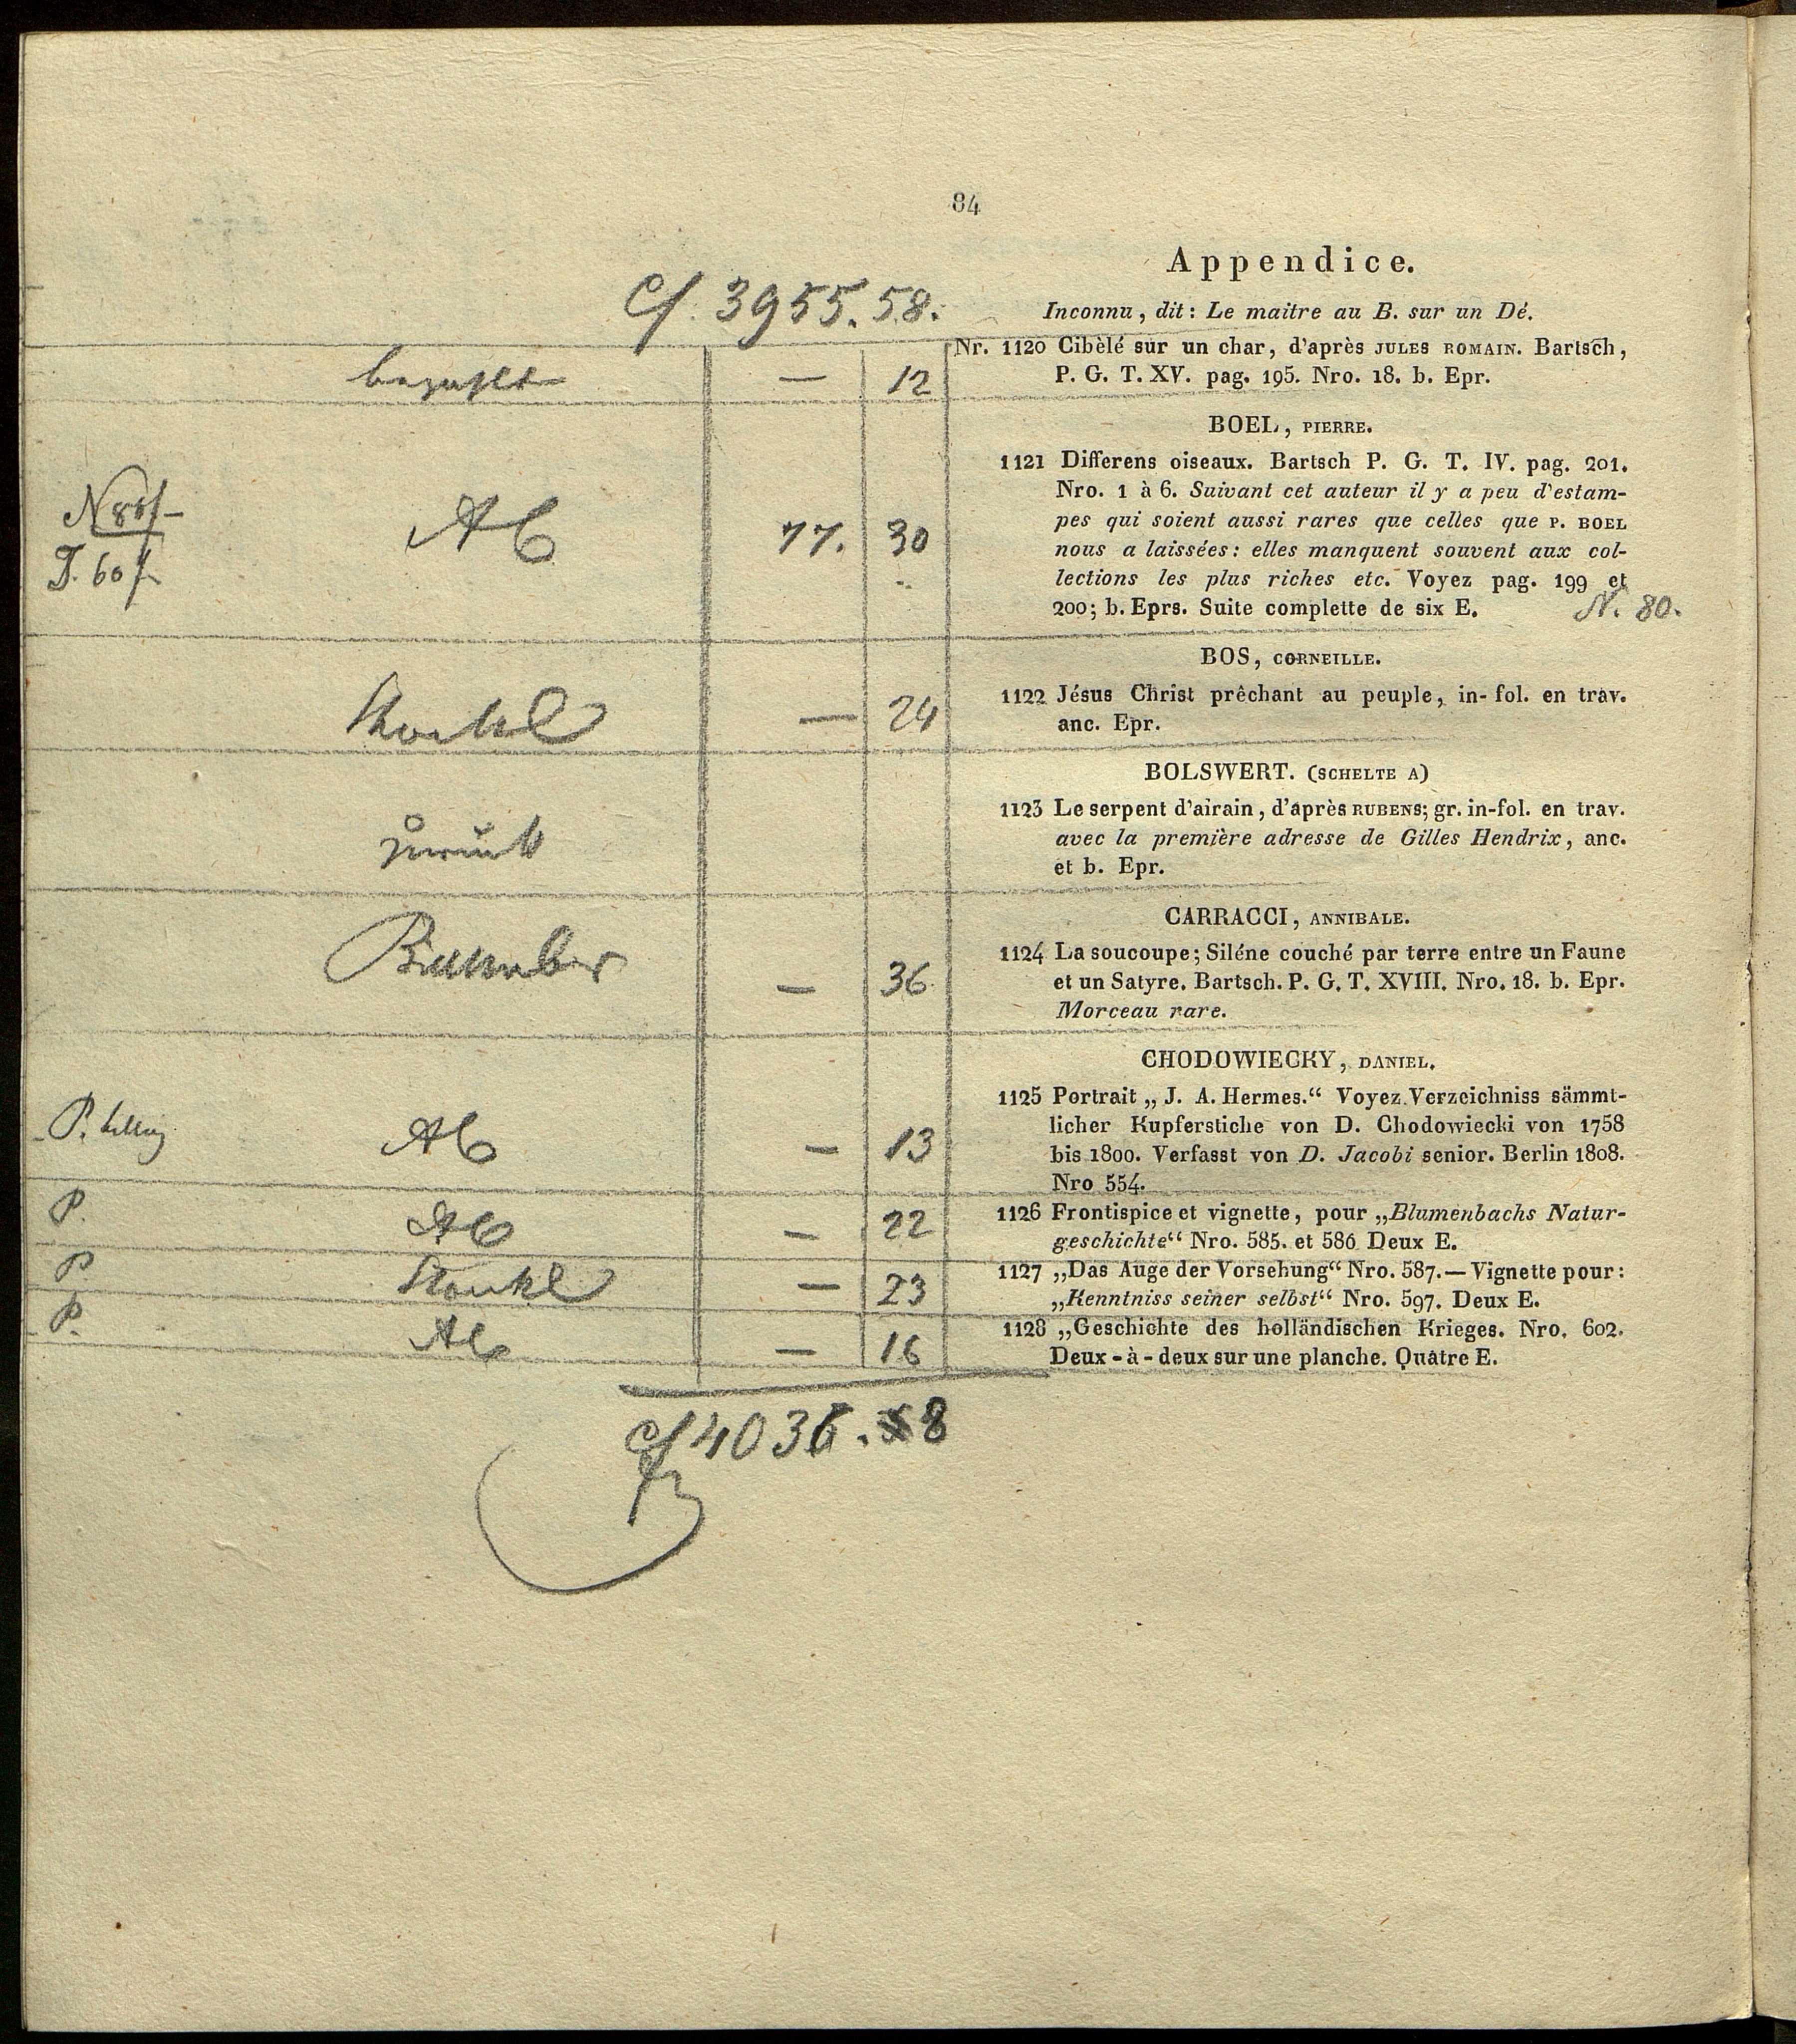 84
Appendice.
3955.58.
Inconnu, dit: Le maitre au B. sur un Dé.
Nr. 1120 Cibèlé sur un char, d'après JULES ROMAIN. Bartsch,
P. G. T. XV. pag. 195. Nro. 18. b. Epr.
bezahlt — 12
BOEL, PIERRE.
1121 Differens oiseaux. Bartsch P. G. T. IV. pag. 201.
Nro. 1 à 6. Suivant cet auteur il y a peu d'estam-
pes qui soient aussi rares que celles que P. BOEL
nous a laissées: elles manquent souvent aux col-
lections les plus riches etc. Voyez pag. 199 et
200; b. Eprs. Suite complette de six E.
N. 80.
77. 30
BOS, CORNEILLE.
1122 Jésus Christ prêchant au peuple, in-fol. en trav.
anc. Epr.
— 24
BOLSWERT. (SCHELTE A)
1123 Le serpent d'airain, d'après RUBENS; gr. in-fol. en trav.
avec la première adresse de Gilles Hendrix, anc.
et b. Epr.
zurück
CARRACCI, ANNIBALE.
1124 La soucoupe; Siléne couché par terre entre un Faune
et un Satyre. Bartsch. P. G. T. XVIII. Nro. 18. b. Epr.
Morceau rare.
— 36
CHODOWIECKY, DANIEL.
1125 Portrait „J. A. Hermes." Voyez Verzeichniss sämmt-
licher Kupferstiche von D. Chodowiecki von 1758
bis 1800. Verfasst von D. Jacobi senior. Berlin 1808.
Nro 554.
P. — 13
1126 Frontispice et vignette, pour „Blumenbachs Natur-
geschichte" Nro. 585. et 586 Deux E.
P. — 22
1127 „Das Auge der Vorsehung" Nro. 587.—Vignette pour:
„Kenntniss seiner selbst" Nro. 597. Deux E.
P — 23
1128 „Geschichte des holländischen Krieges. Nro. 602.
Deux-à-deux sur une planche. Quatre E.
P. — 16
4036. 8